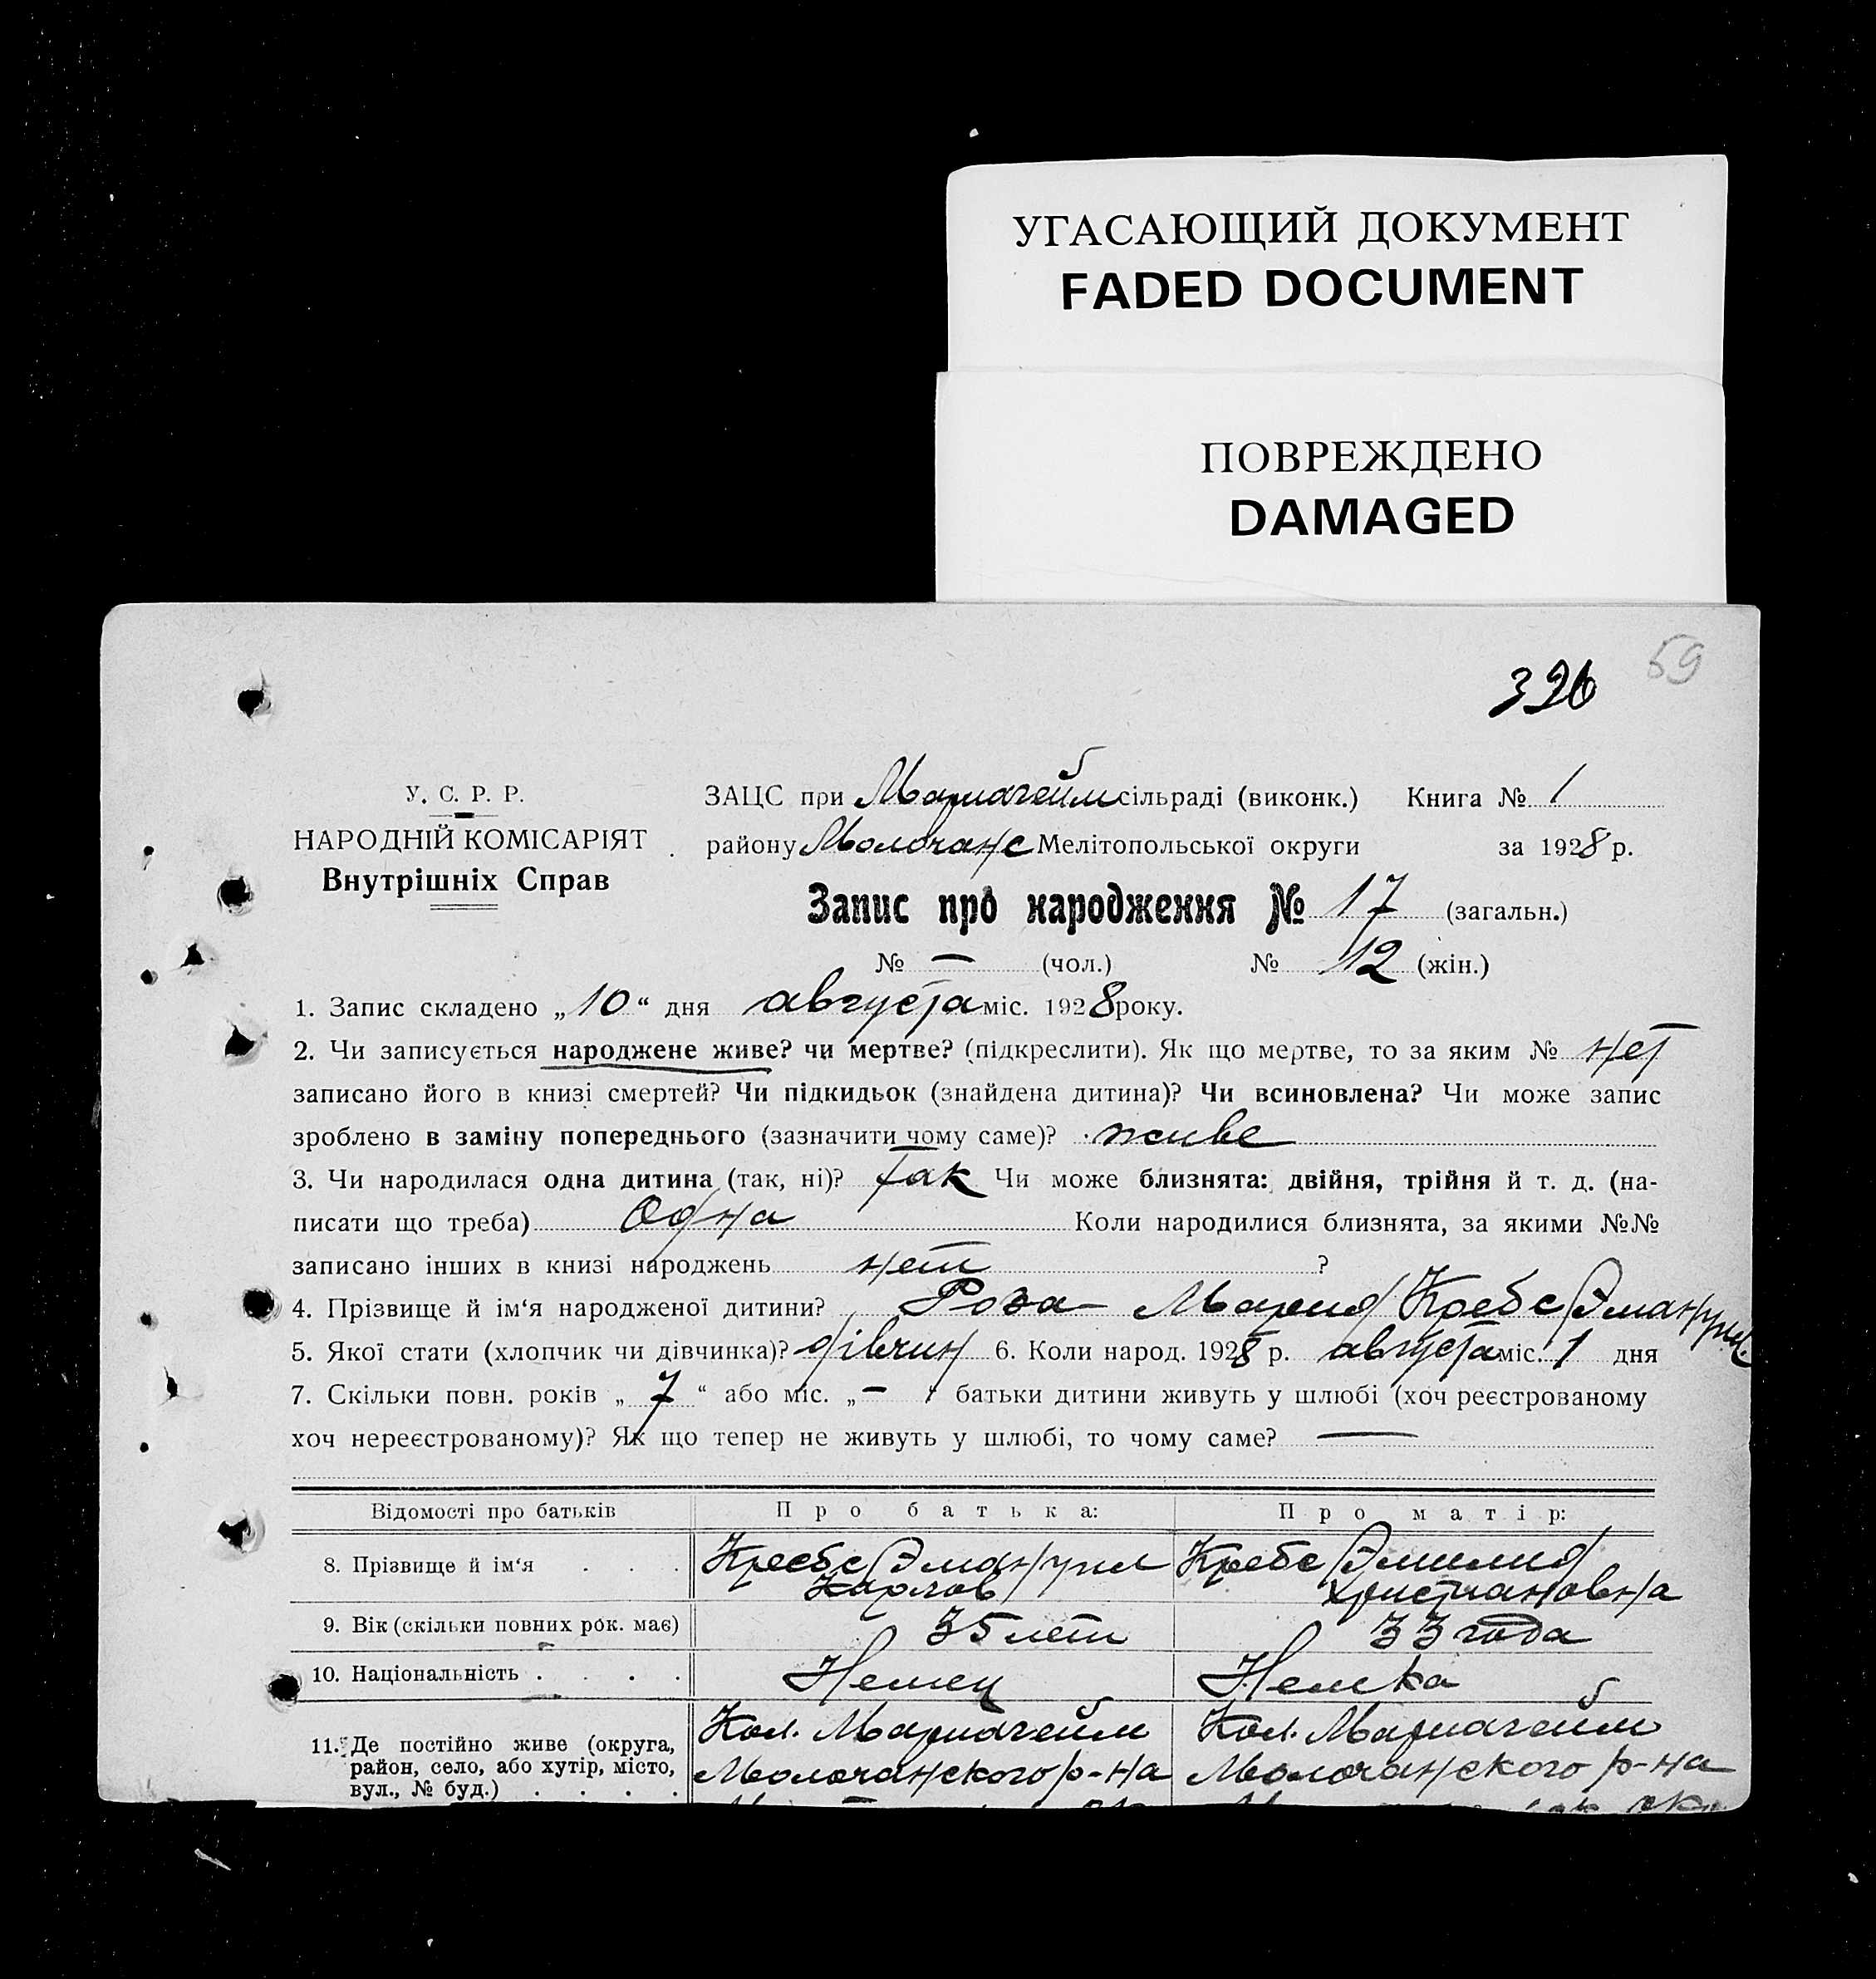 УГАСАЮЩИЙ ДОКУМЕНТ
FADED DOCUMENT
ПОВРЕЖДЕНО
DAMAGED
59
326
У. С. Р. Р.
НАРОДНІЙ КОМІСАРІЯТ
Внутрішніх Справ
ЗАЦС при Мариагейм сільраді (виконк.) Книга № 1
району Молочанс Мелітопольської округи за 1928 р.
Запис про народження № 17 (загальн.)
№ — (чол.) № 12 (жін.)
1. Запис складено „10“ дня августа міс. 1928 року.
2. Чи записується народжене живе? чи мертве? (підкреслити). Як що мертве, то за яким № нет
записано його в книзі смертей? Чи підкидьок (знайдена дитина)? Чи всиновлена? Чи може запис
зроблено в заміну попереднього (зазначити чому саме)? живе
3. Чи народилася одна дитина (так, ні)? так Чи може близнята: двійня, трійня й т. д. (на-
писати що треба) Одна Коли народилися близнята, за якими №№
записано інших в книзі народжень нет ?
4. Прізвище й ім‘я народженої дитини? Роза Мария Кребс Эмануил.
5. Якої стати (хлопчик чи дівчинка)? дівчин 6. Коли народ. 1928 р. августа міс. 1 дня
7. Скільки повн. років „ 7 “ або міс. „ — “ батьки дитини живуть у шлюбі (хоч реєстрованому
хоч нереєстрованому)? Як що тепер не живуть у шлюбі, то чому саме? —
Відомості про батьків Про батька: Про матір:
8. Прізвище й ім‘я . . . Кребс Эмануил Кребс Эмилия
Карлов Христиановна
9. Вік (скільки повних рок. має) 35 лет 33 года
10. Національність . . . . Немец Немка
11. Де постійно живе (округа, Кол. Мариагейм Кол. Мариагейм
район, село, або хутір, місто, Молочанского р-на Молочанского р-на
вул., № буд.) . . . .